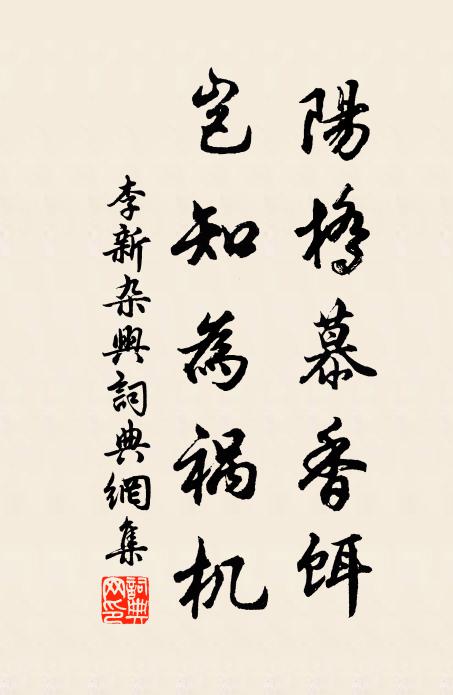 陽橋慕香餌
岂知為禍机
李新杂興詞典網集
詞典网印